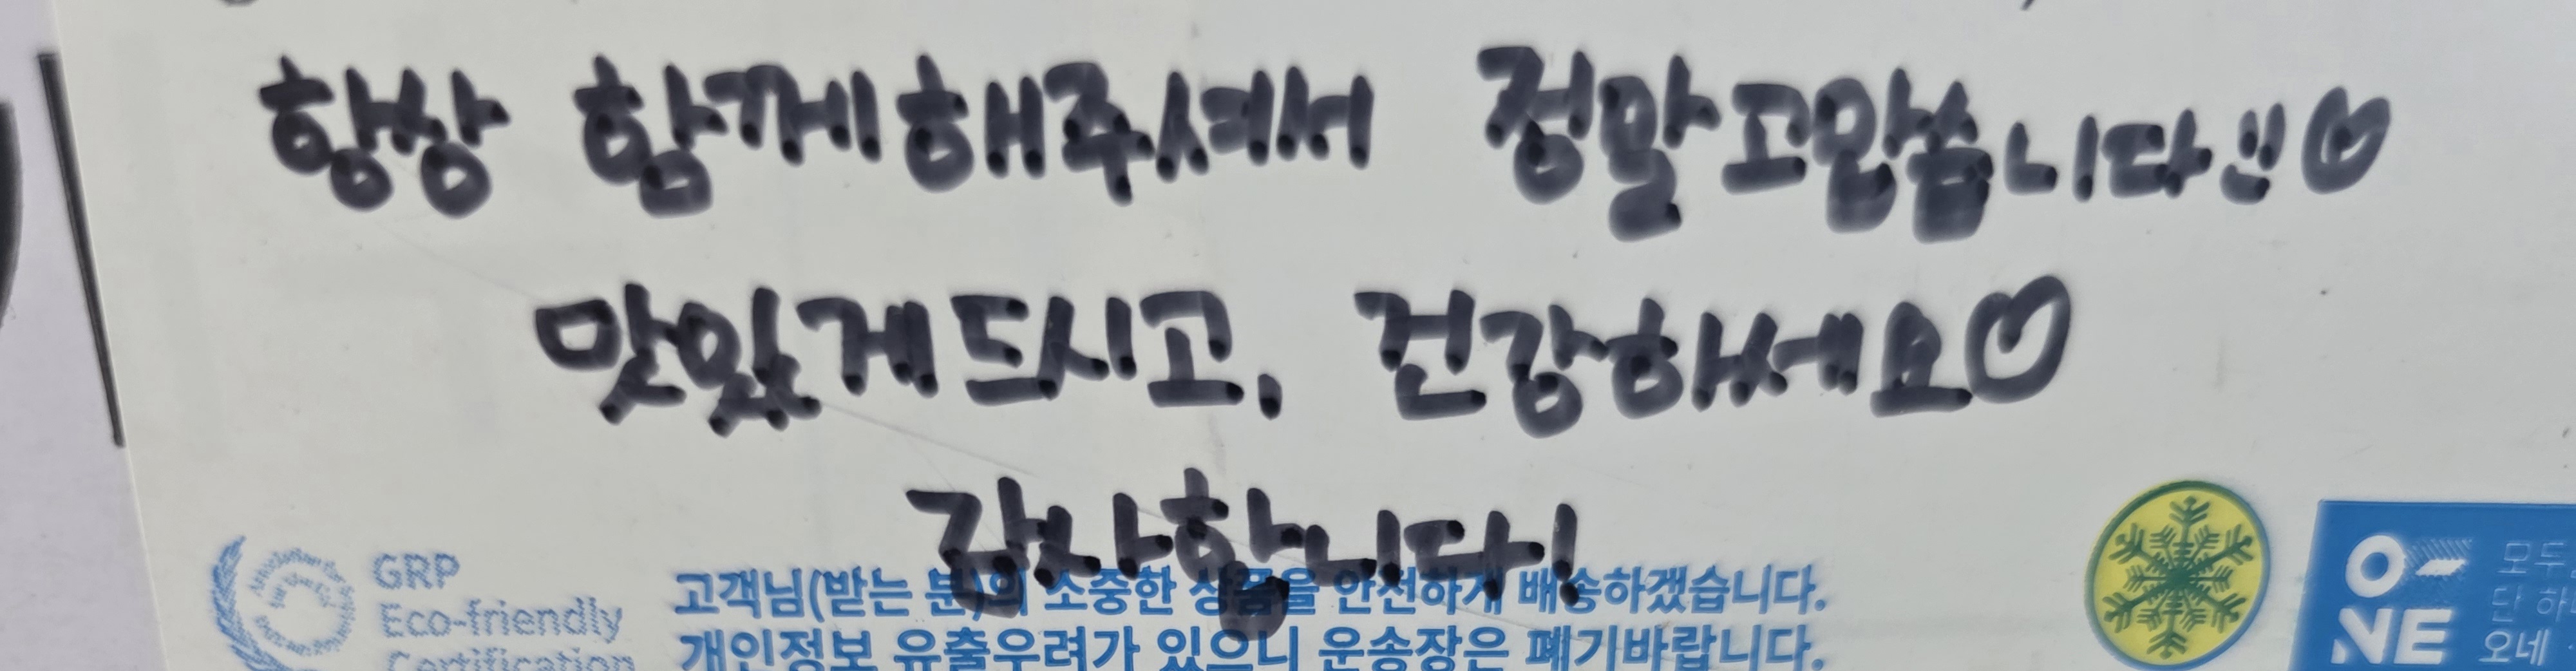 항상 함께해주셔서 정말고맙습니다!!♡
맛있게드시고, 건강하세요♡
감사합니다!
GRP
Eco-friendly
Certification
고객님(받는 분)의 소중한 상품을 안전하게 배송하겠습니다.
개인정보 유출우려가 있으니 운송장은 폐기바랍니다.
O-
NE
모두
단 하
오네